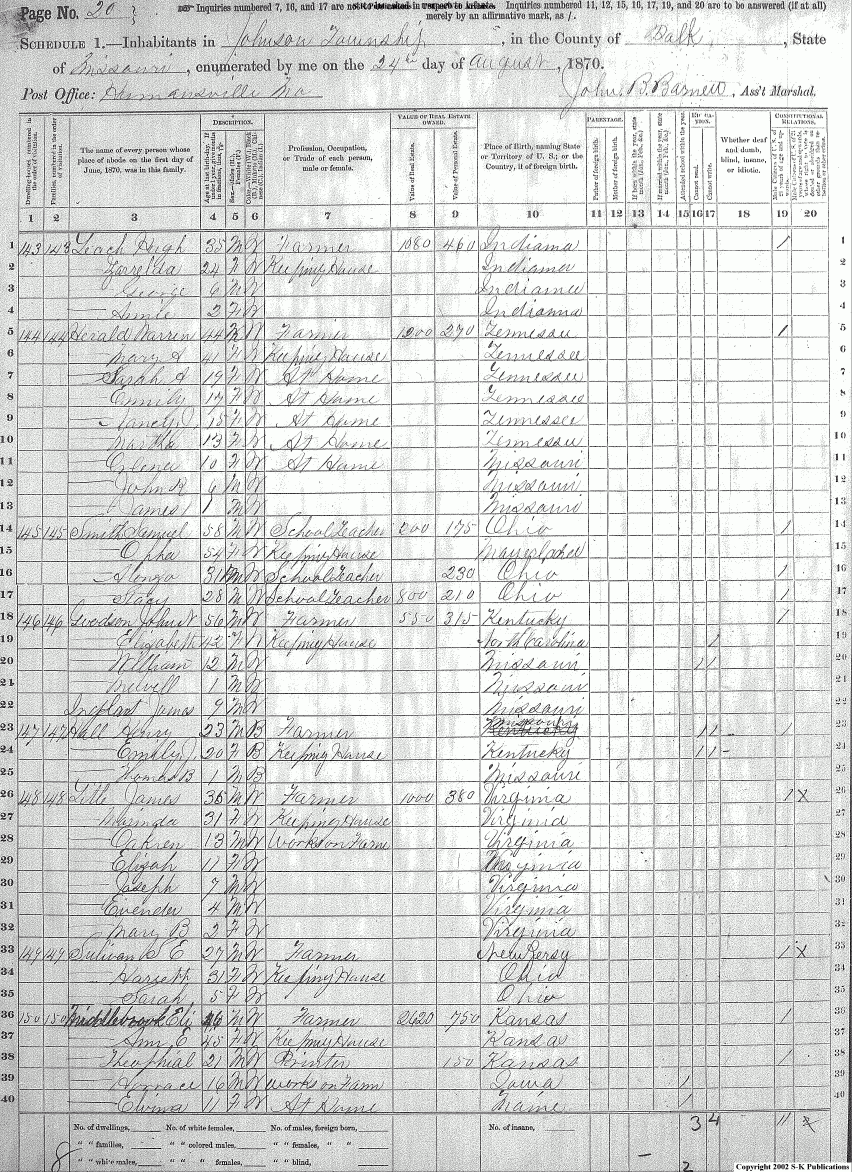 Page No. 20
Inquiries numbered 7, 16, and 17 are not to be asked in respect to infants. Inquiries numbered 11, 12, 15, 16, 17, 19, and 20 are to be answered (if at all)
merely by an affirmative mark, as /.
SCHEDULE 1.—Inhabitants in Johnson Township, in the County of Polk, State
of Missouri, enumerated by me on the 24th day of August, 1870.
Post Office: Humansville Mo John B. Barnett, Ass't Marshal.
DESCRIPTION. VALUE OF REAL ESTATE OWNED. PARENTAGE. CONSTITUTIONAL RELATIONS.
The name of every person whose place of abode on the first day of June, 1870, was in this family.
Profession, Occupation, or Trade of each person, male or female.
Value of Real Estate. Value of Personal Estate.
Place of Birth, naming State or Territory of U. S.; or the Country, if of foreign birth.
Father of foreign birth. Mother of foreign birth.
Attended school within the year. Cannot read. Cannot write.
Whether deaf and dumb, blind, insane, or idiotic.
1 2 3 4 5 6 7 8 9 10 11 12 13 14 15 16 17 18 19 20
1 143 143 Leach Hugh 35 M W Farmer 1080 460 Indiana / 1
2 Zorrelda 24 F W Keeping House Indiana 2
3 George 6 M W Indiana 3
4 Annie 2 F W Indiana 4
5 144 144 Herald Warren 44 M W Farmer 1200 270 Tennessee / 5
6 Mary A 41 F W Keeping House Tennessee 6
7 Sarah A 19 F W At Home Tennessee 7
8 Emily 17 F W At Home Tennessee 8
9 Nancy 15 F W At Home Tennessee 9
10 Martha 13 F W At Home Tennessee 10
11 10 F W At Home Missouri 11
12 John R 6 M W Missouri 12
13 James 1 M W Missouri 13
14 145 145 Smith Samuel 58 M W School Teacher 200 175 Ohio / 14
15 Opha 54 F W Keeping House 15
16 Alonzo 31 M W School Teacher 230 Ohio / 16
17 Stacy 28 M W School Teacher 800 210 Ohio / 17
18 146 146 Goodson John N 56 M W Farmer 550 315 Kentucky / 18
19 Elizabeth 42 F W Keeping House North Carolina / 19
20 William 12 M W Missouri / / 20
21 1 M W Missouri 21
22 James 9 M W Missouri 22
23 147 147 Hall Henry 23 M B Farmer Missouri / / / 23
24 Emily 20 F B Keeping House Kentucky / / 24
25 Thomas B 1 M B Missouri 25
26 148 148 Little James 36 M W Farmer 1000 380 Virginia / X 26
27 31 F W Keeping House Virginia 27
28 13 M W Works on Farm Virginia 28
29 Elizah 11 F W Virginia 29
30 Joseph 7 M W Virginia 30
31 Evender 4 M W Virginia 31
32 Mary B 2 F W Virginia 32
33 149 149 Sulivan S E 27 M W Farmer New Jersy / X 33
34 Harieth 31 F W Keeping House Ohio 34
35 Sarah 5 F W Ohio 35
36 150 150 Middlebrook Eli 46 M W Farmer 2620 750 Kansas / 36
37 Ann E 45 F W Keeping House Kansas 37
38 Theophial 21 M W Printer 150 Kansas / 38
39 Horrace 16 M W Works on Farm Iowa / 39
40 Elvina 11 F W At Home / 40
No. of dwellings, No. of white females, No. of males, foreign born, No. of insane, 3 4 11
" " families, " " colored males, " " females, " "
8 " " white males, " " " females, " " blind, 2
Copyright 2002 S-K Publications